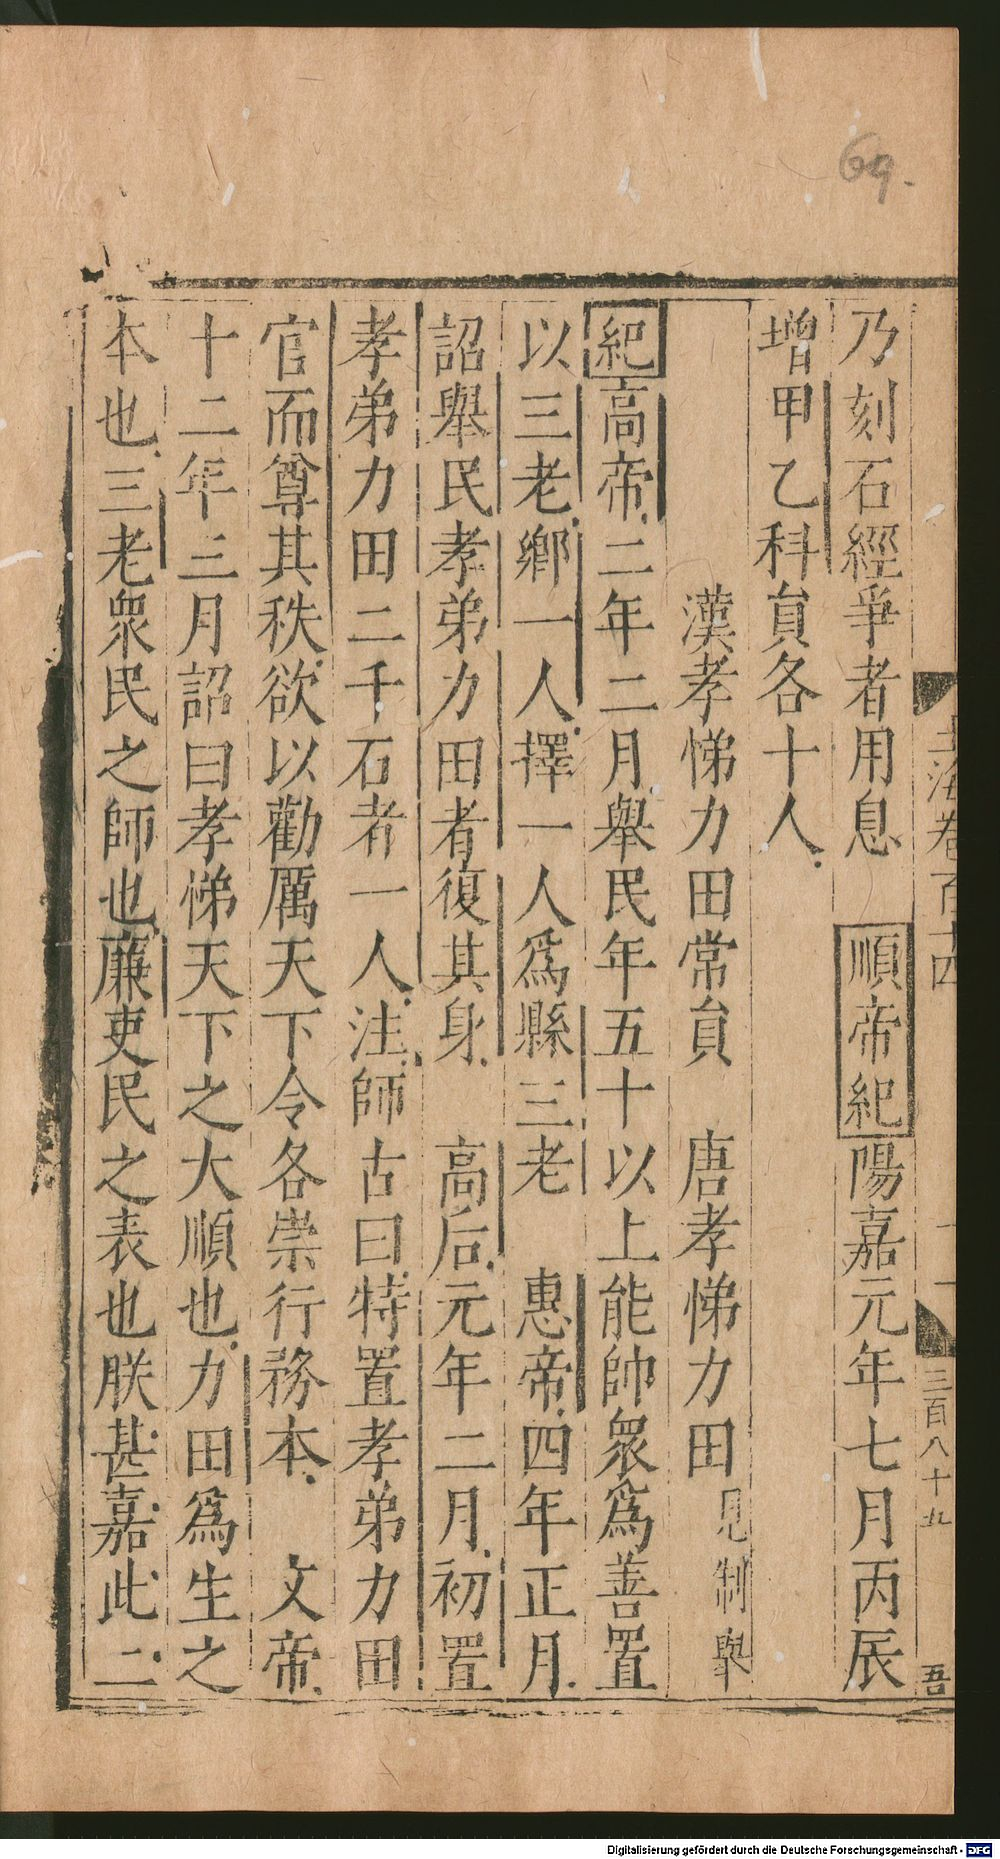 69.
玉海卷百十四
三百八十九
吾
乃刻石經爭者用息　順帝紀陽嘉元年七月丙辰
增甲乙科員各十人
漢孝悌力田常員　唐孝悌力田見制舉
紀高帝二年二月舉民年五十以上能帥眾爲善置
以三老鄉一人擇一人爲縣三老　惠帝四年正月
詔舉民孝弟力田者復其身　高后元年二月初置
孝弟力田二千石者一人注師古曰特置孝弟力田
官而尊其秩欲以勸厲天下令各崇行務本　文帝
十二年三月詔曰孝悌天下之大順也力田爲生之
本也三老眾民之師也廉吏民之表也朕甚嘉此二
Digitalisierung gefördert durch die Deutsche Forschungsgemeinschaft - DFG